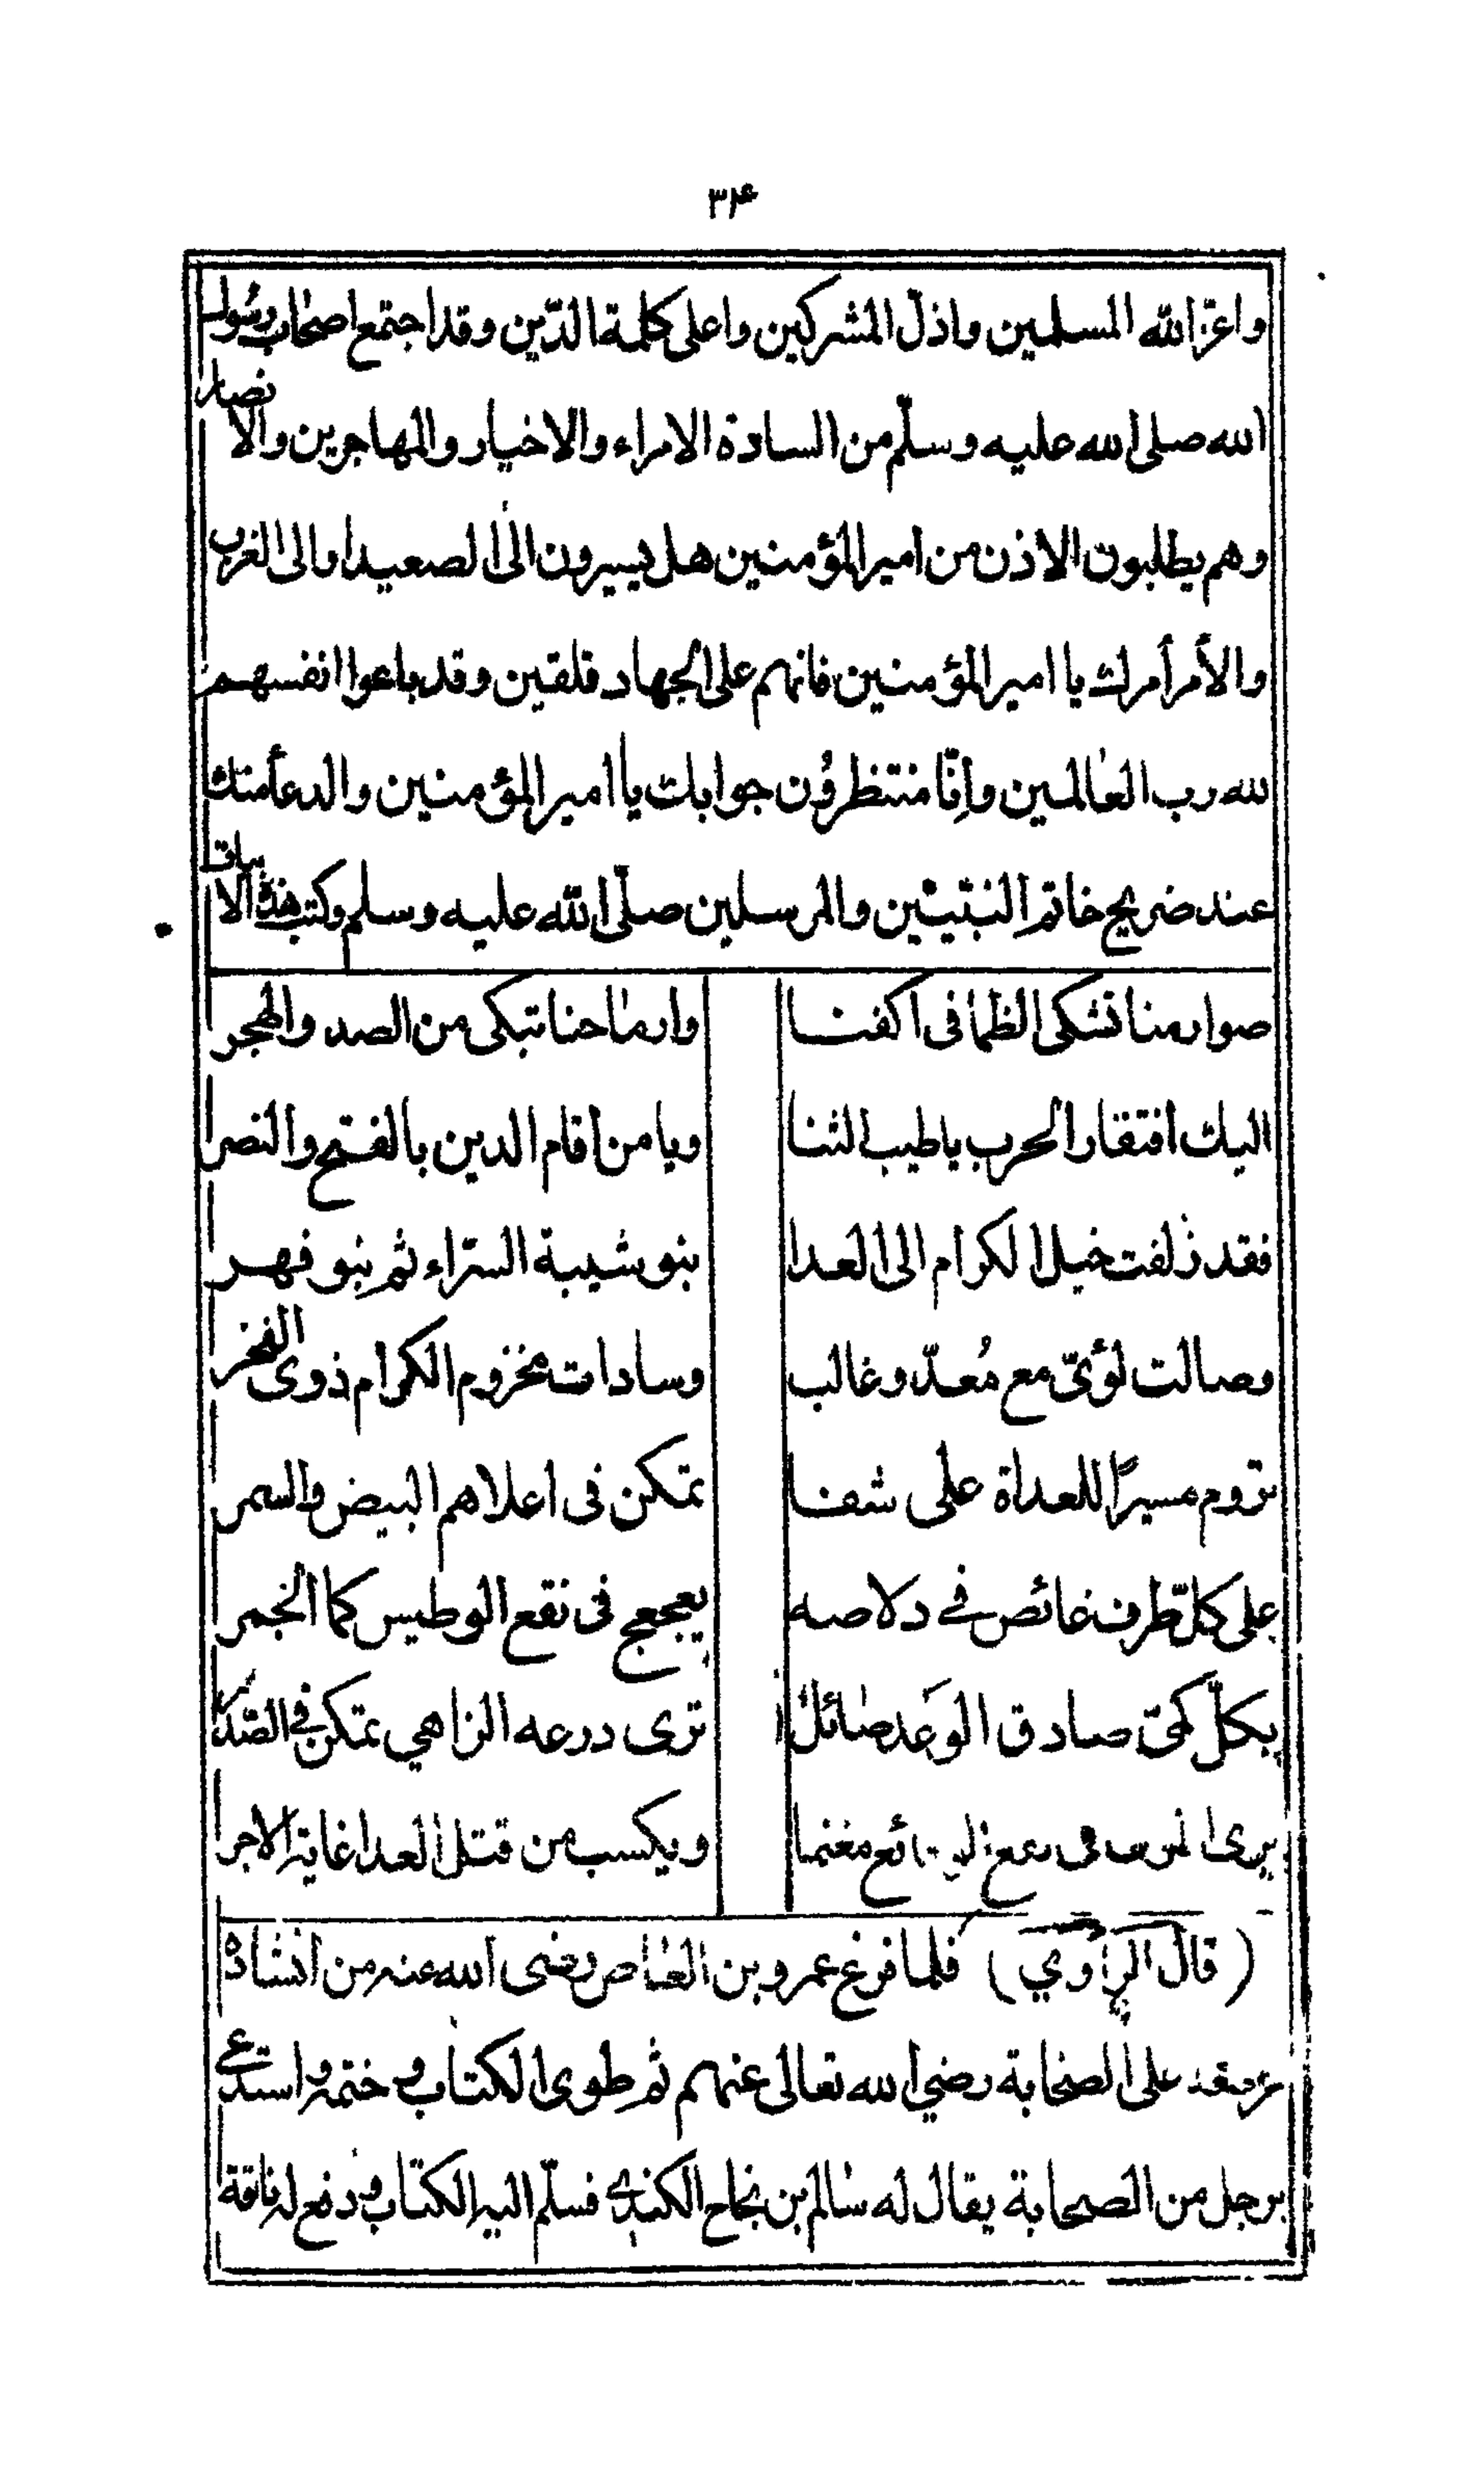 ۳۴
واعزّ الله المسلمين واذلّ المشركين واعلى كلمة الدّين وقد اجتمع اصحاب رسول
الله صلى الله عليه وسلّم من السادة الامراء والاخيار والمهاجرين والانصار
وهم يطلبون الاذن من امير المؤمنين هل يسيرون الى الصعيد اما لى الغرب
والأمر أمرك يا امير المؤمنين فانهم على الجهاد قلقين وقد باعوا انفسهم
لله رب العالمين وانّا منتظرون جوابك يا امير المؤمنين والدعأ منك
عند ضريح خاتم النبيين والمرسلين صلّى الله عليه وسلم وكتب هذه الابيات
صوارمنا تشكى الظما فى اكفنا وارماحنا تبكى من الصد والهجر
اليك افتقار الحرب يا طيب الثنا ويا من اقام الدين بالفتح والنصر
فقد زلفت خيل الكرام الى العدا بنو شيبة السرّاء ثم بنو فهر
وصالت لؤىّ مع مُعدّ وغالب وسادات مخزوم الكرام ذوى الفخر
تروم مسيرًا للعداة على شفا تمكن فى اعلاهم البيض والسمر
على كلّ طرف غائص فى دلاصه يعجعج فى نقع الوطيس كما الخمر
بكلّ كمىّ صادق الوعد صائل ترى درعه الزاهي تمكن فى الصدر
يرى الموت فى مغنما ويكسب من قتل العدا غاية الاجرا
(قال الراوي) فلما فرغ عمرو بن العاص رضى الله عنه من انشاده
على الصحابة رضي الله تعالى عنهم ثم طوى الكتاب وختمه واستدعى
برجل من الصحابة يقال له سالم بن نجاح الكندى فسلّم اليه الكتاب ودفع له ناقة